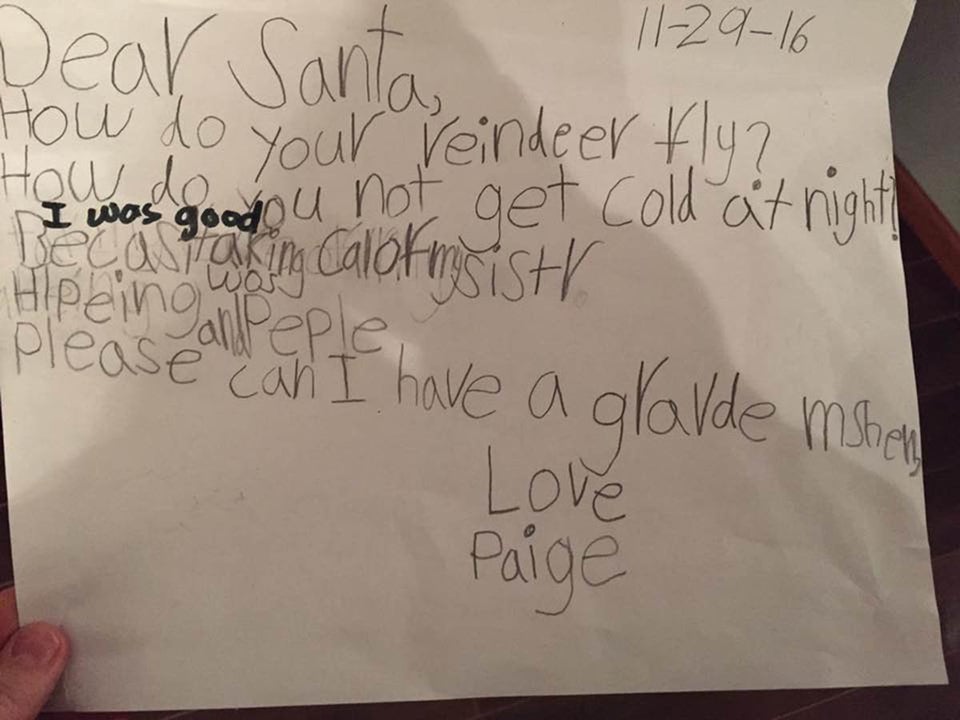 11-29-16
Dear Santa,
How do your reindeer fly?
How do you not get cold at night!
I was good
Becas taking car of my sistr
was
Hlpeing and Peple
Please can I have a grarde mshen,
Love
Paige